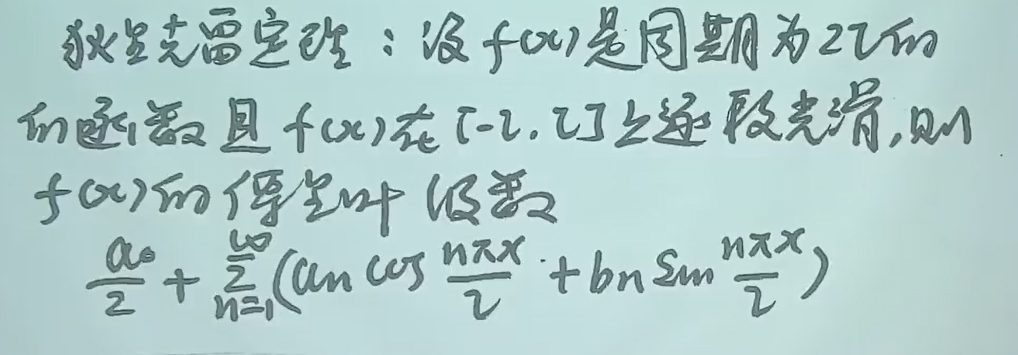 狄里克雷定理：设f(x)是周期为2l的
的函数且f(x)在[-l,l]上逐段光滑,则
f(x)的傅里叶级数
a₀/2 + ∑_{n=1}^{∞}(aₙ cos nπx/l + bₙ sin nπx/l)